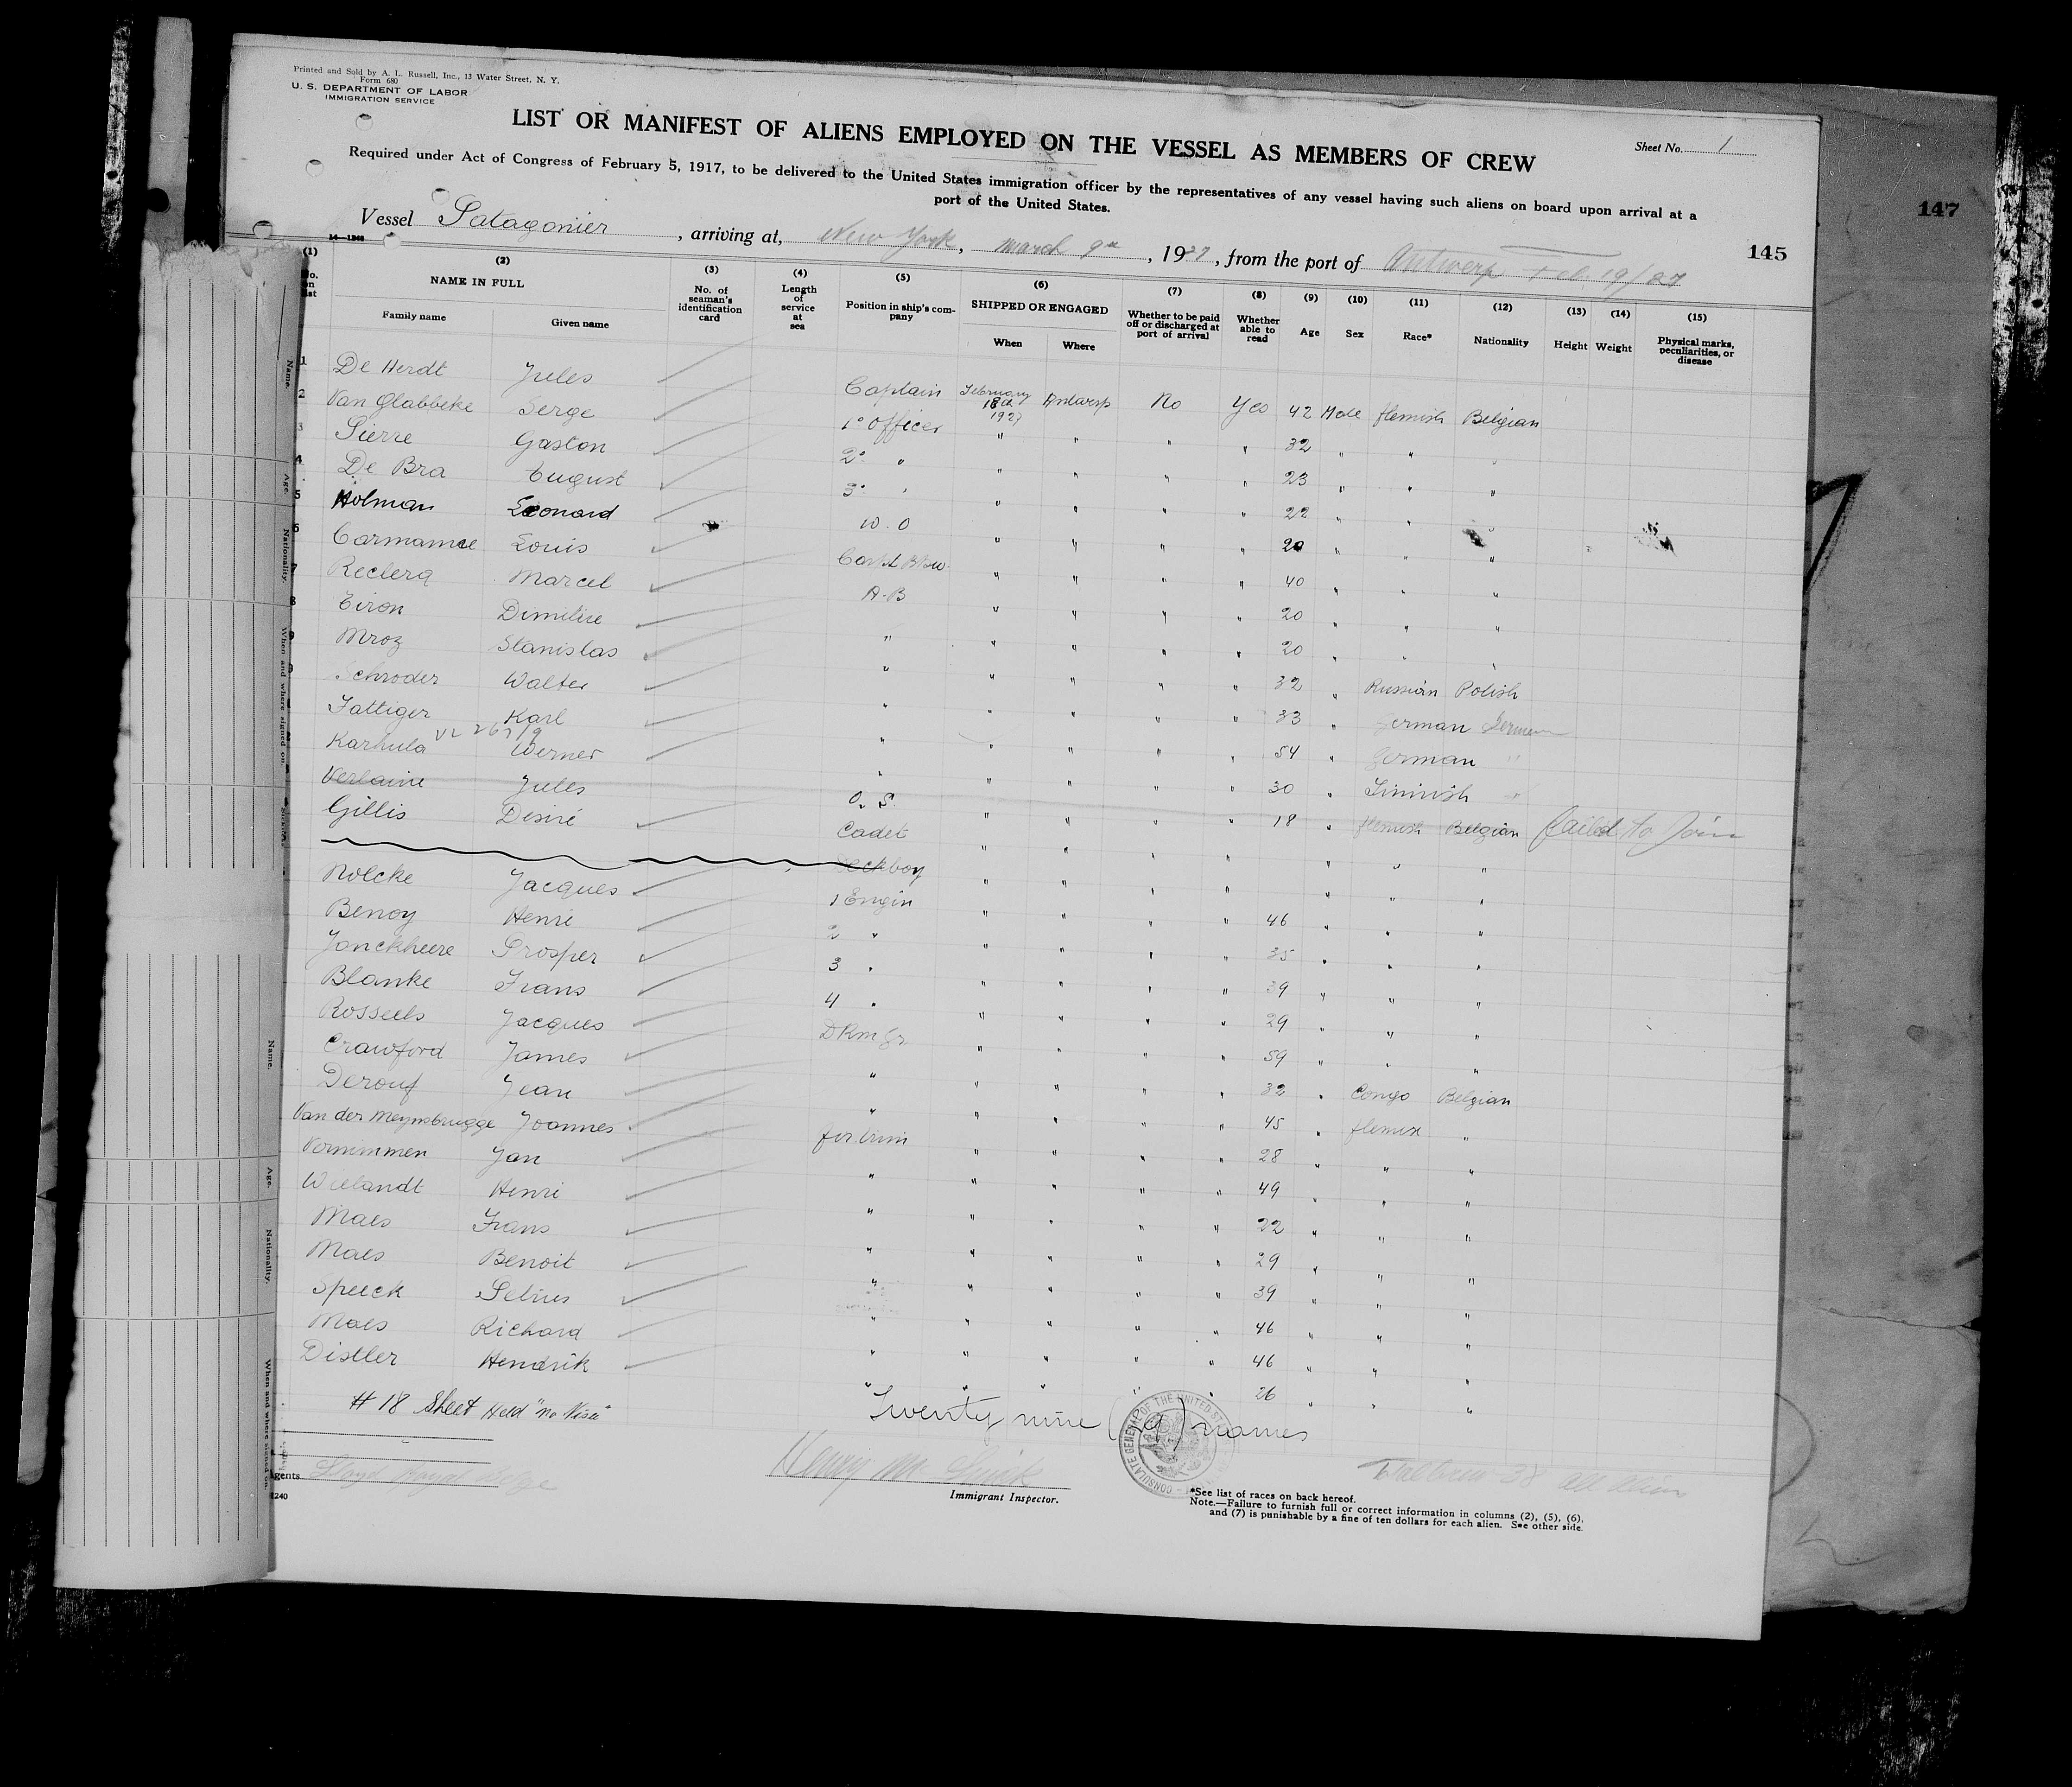 Printed and Sold by A. L. Russell, Inc., 13 Water Street, N. Y.
Form 680
U. S. DEPARTMENT OF LABOR
IMMIGRATION SERVICE
LIST OR MANIFEST OF ALIENS EMPLOYED ON THE VESSEL AS MEMBERS OF CREW
Sheet No. 1
Required under Act of Congress of February 5, 1917, to be delivered to the United States immigration officer by the representatives of any vessel having such aliens on board upon arrival at a
port of the United States.
147
Vessel Patagonier, arriving at, New York, March 9th, 1927, from the port of Antwerp Feb. 19/27
145
(1) (2) (3) (4) (5) (6) (7) (8) (9) (10) (11) (12) (13) (14) (15)
NAME IN FULL
Family name Given name
No. of seaman's identification card
Length of service at sea
Position in ship's company
SHIPPED OR ENGAGED
When Where
Whether to be paid off or discharged at port of arrival
Whether able to read
Age Sex Race* Nationality Height Weight
Physical marks, peculiarities, or disease
1 De Herdt Jules Captain February 18th 1927 Antwerp No Yes 42 Male flemish Belgian
2 Van Glabbeke Serge 1° officer " " " " 32 " " "
3 Pierre Gaston 2° " " " " " 23 " " "
4 De Bra August 3° " " " " " 22 " " "
5 Holman Leonard W.O " " " " 20 " " "
6 Carmanne Louis " " " " 40 " " "
7 Reclerq Marcel A-B " " " " 20 " " "
8 Eiron " " " " " 20 " " "
9 Mroz Stanislas " " " " " 32 " Russian Polish
Schroder Walter " " " " " 33 " German German
Fattiger Karl " " " " " 54 " German "
Karhula Werner " " " " " 30 " Finnish "
Verlaine Jules O. S. " " " " 18 " flemish Belgian failed to Join
Gillis Desiré Cadet " " " " " " "
deckboy " " " " " " "
Nolcke Jacques 1 Engin " " " " 46 " " "
Benoy Henri 2 " " " " " 35 " " "
Jonckheere Prosper 3 " " " " " 39 " " "
Blanke Frans 4 " " " " " 29 " " "
Rosseels Jacques " " " " 59 " " "
Crawford James " " " " " 32 " Congo Belgian
Derouf Jean " " " " " 45 " "
Van der Meynsbrugge Joannes fir trim " " " " 28 " " "
Vernimmen Jan " " " " " 49 " " "
Weelandt Henri " " " " " 22 " " "
Maes Frans " " " " " 29 " " "
Maes Benoit " " " " " 39 " " "
Speeck " " " " " 46 " " "
Maes Richard " " " " " 46 " " "
Distler Hendrik " " " " " 26 " " "
# 18 Sheet Held "No Visa"
Twenty nine (29) names
CONSULATE GENERAL OF THE UNITED STATES
Agents Lloyd Royal Belge
Immigrant Inspector.
*See list of races on back hereof.
Note.—Failure to furnish full or correct information in columns (2), (5), (6),
and (7) is punishable by a fine of ten dollars for each alien. See other side.
Name.
Age.
Nationality.
When and where signed on.
Name.
Age.
Nationality.
When and where signed on.